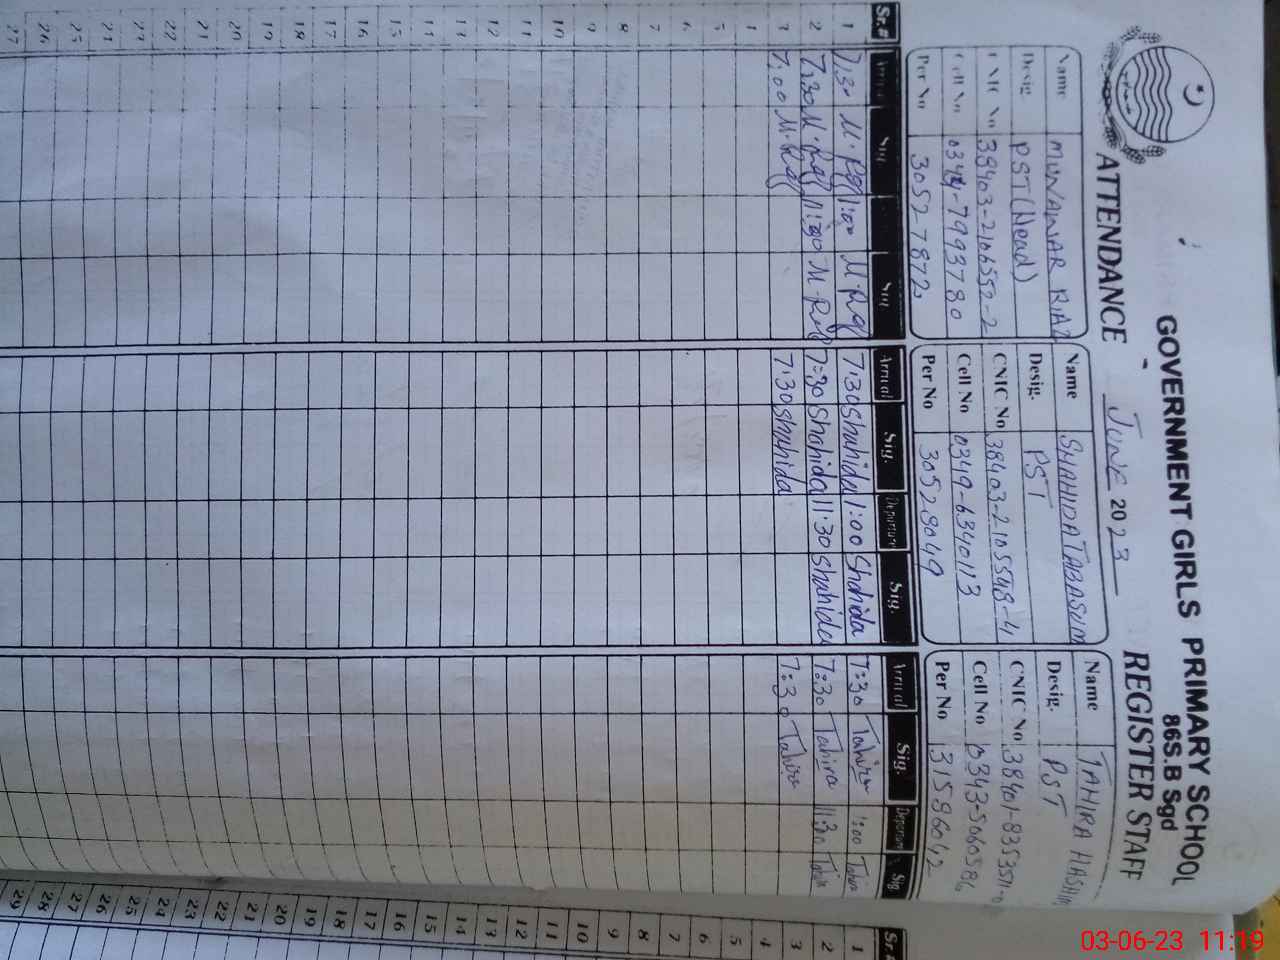 GOVERNMENT GIRLS PRIMARY SCHOOL
86S.B Sgd
ATTENDANCE JUNE 2023 REGISTER STAFF
Name MUNAWAR RIAZ
Desig. PST (Head)
CNIC No 38403-2166552-2
Cell No
Per No 30527872
Name SHAHIDA TABASUM
Desig. PST
CNIC No 38403-2105548-4
Cell No 0349-6340113
Per No 30528049
Name TAHIRA HASHIM
Desig. PST
CNIC No
Cell No 0343-5060586
Per No 31586042
Sr.# Arrival Sig. Sig. Arrival Sig. Departure Sig. Arrival Sig. Departure Sig. Sr.#
1 7:30 M.Raf 1:00 M.Raf 7:30 Shahida 1:00 Shahida 7:30 Tahira 1:00 Tahira 1
2 7:30 M.Raf 11:30 M.Raf 7:30 Shahida 11:30 Shahida 7:30 Tahira 11:30 Tahira 2
3 7:00 M.Raf 7:30 Shahida 7:30 Tahira 3
4 4
5 5
6 6
7 7
8 8
9 9
10 10
11 11
12 12
13 13
14 14
15 15
16 16
17 17
18 18
19 19
20 20
21 21
22 22
23 23
24 24
25 25
26 26
27 27
28
29
03-06-23 11:19